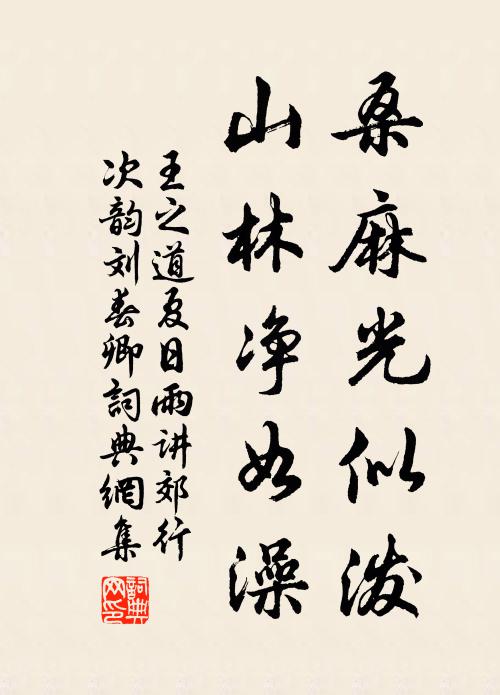 桑麻光似泼
山林净如澡
王之道夏日雨讲郊行
次韵刘春卿詞典網集
詞典
网印